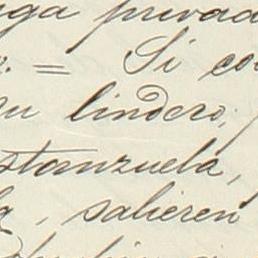 privad
= Si co
lindero,
stanzuela,
, salieren